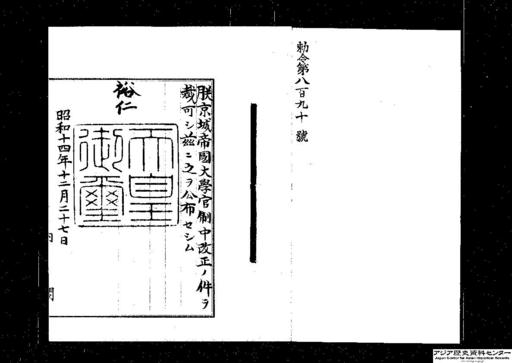 勅令第八百九十號
朕京城帝國大學官制中改正ノ件ヲ
裁可シ茲ニ之ヲ公布セシム
裕仁
天皇
御璽
昭和十四年十二月二十七日
内
閣
アジア歴史資料センター
Japan Center for Asian Historical Records